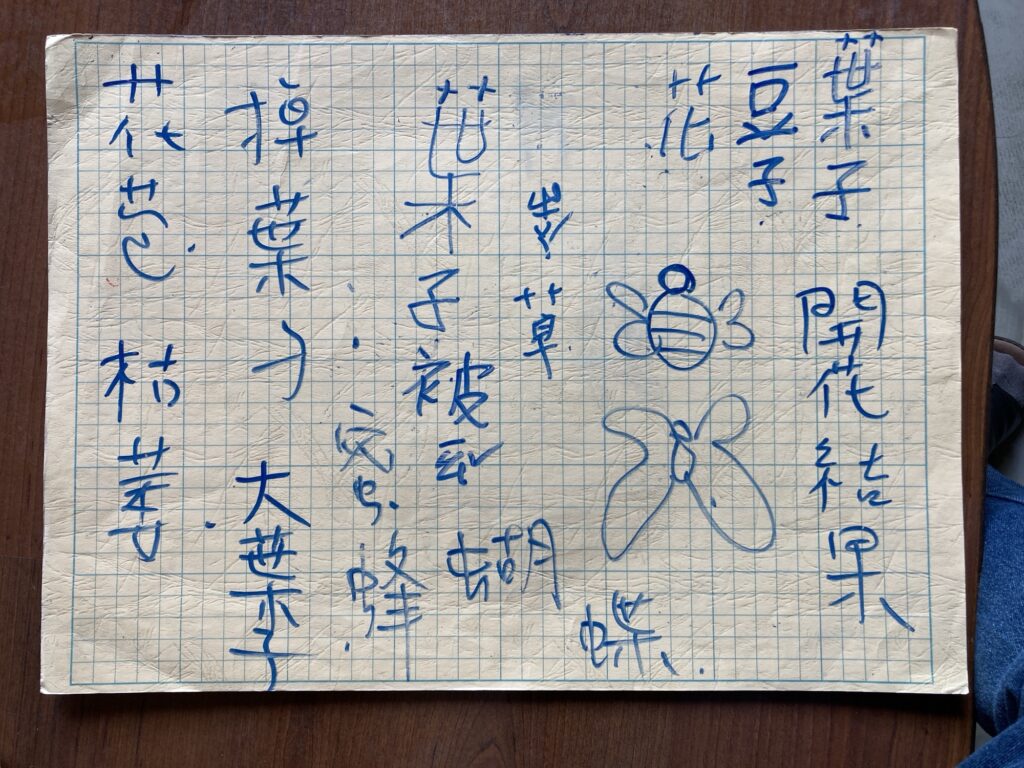 葉子 開花結果
子
花
草
花木子被
蝴蝶
蜜蜂
掉葉子 大葉子
花苞 枯